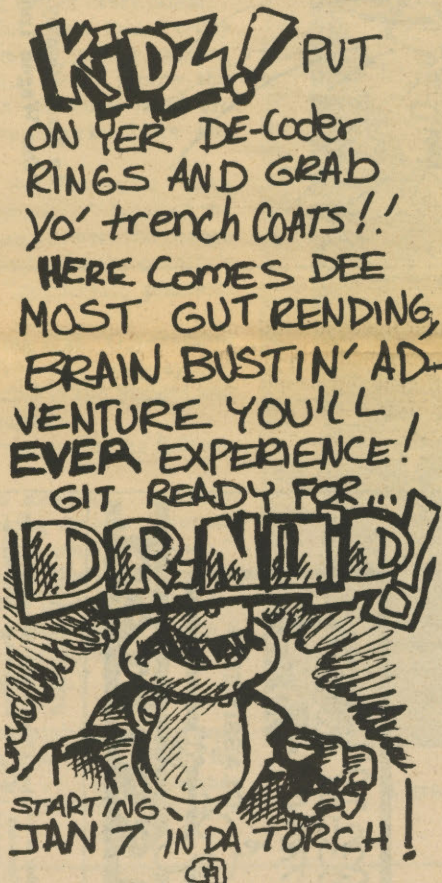 KiDZ! PUT
ON YER DE-Coder
RINGS AND GRAb
yo' trench COATS!!
HERE COMES DEE
MOST GUT RENDING,
BRAIN BUSTIN' AD-
VENTURE YOU'LL
EVER EXPERIENCE!
GIT READY FOR...
DR.
STARTING
JAN 7 IN DA TORCH!